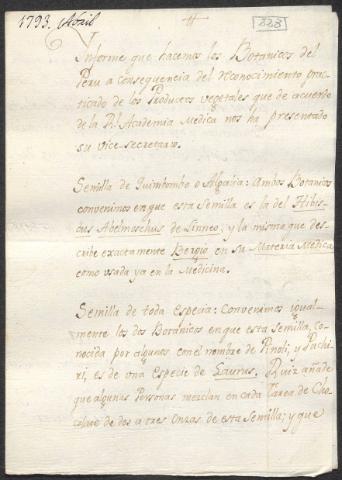 1793. Abril
223
Informe que hacemos los Botanicos del
Peru a consequencia del reconocimiento prac-
ticado de los Productos vegetales que de acuerdo
de la Rl. Academia Medica nos ha presentado
su vice secretario.
Semilla de Quimbombo o Algalia: Ambos Botanicos
convenimos en que esta Semilla es la del Hibis-
cus Abelmoschus de Linneo, y la misma que des-
cribe exactamente Bergio en su Materia Medica
como usada ya en la Medicina.
Semilla de toda especia: Convenimos igual-
mente los dos Botanicos en que esta semilla, co-
nocida por algunos con el nombre de Pinoli, y Puchi-
ri, es de una Especie de Laurus. Ruiz añade
que algunas Personas mezclan en cada Tarea de Cho-
colate de dos a tres Onzas de esta Semilla; y que